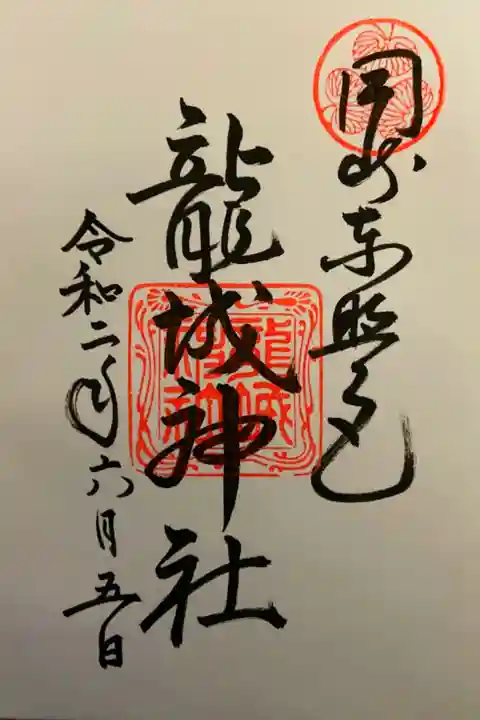 岡崎東照宮
龍城神社
龍城神社
令和二年六月五日